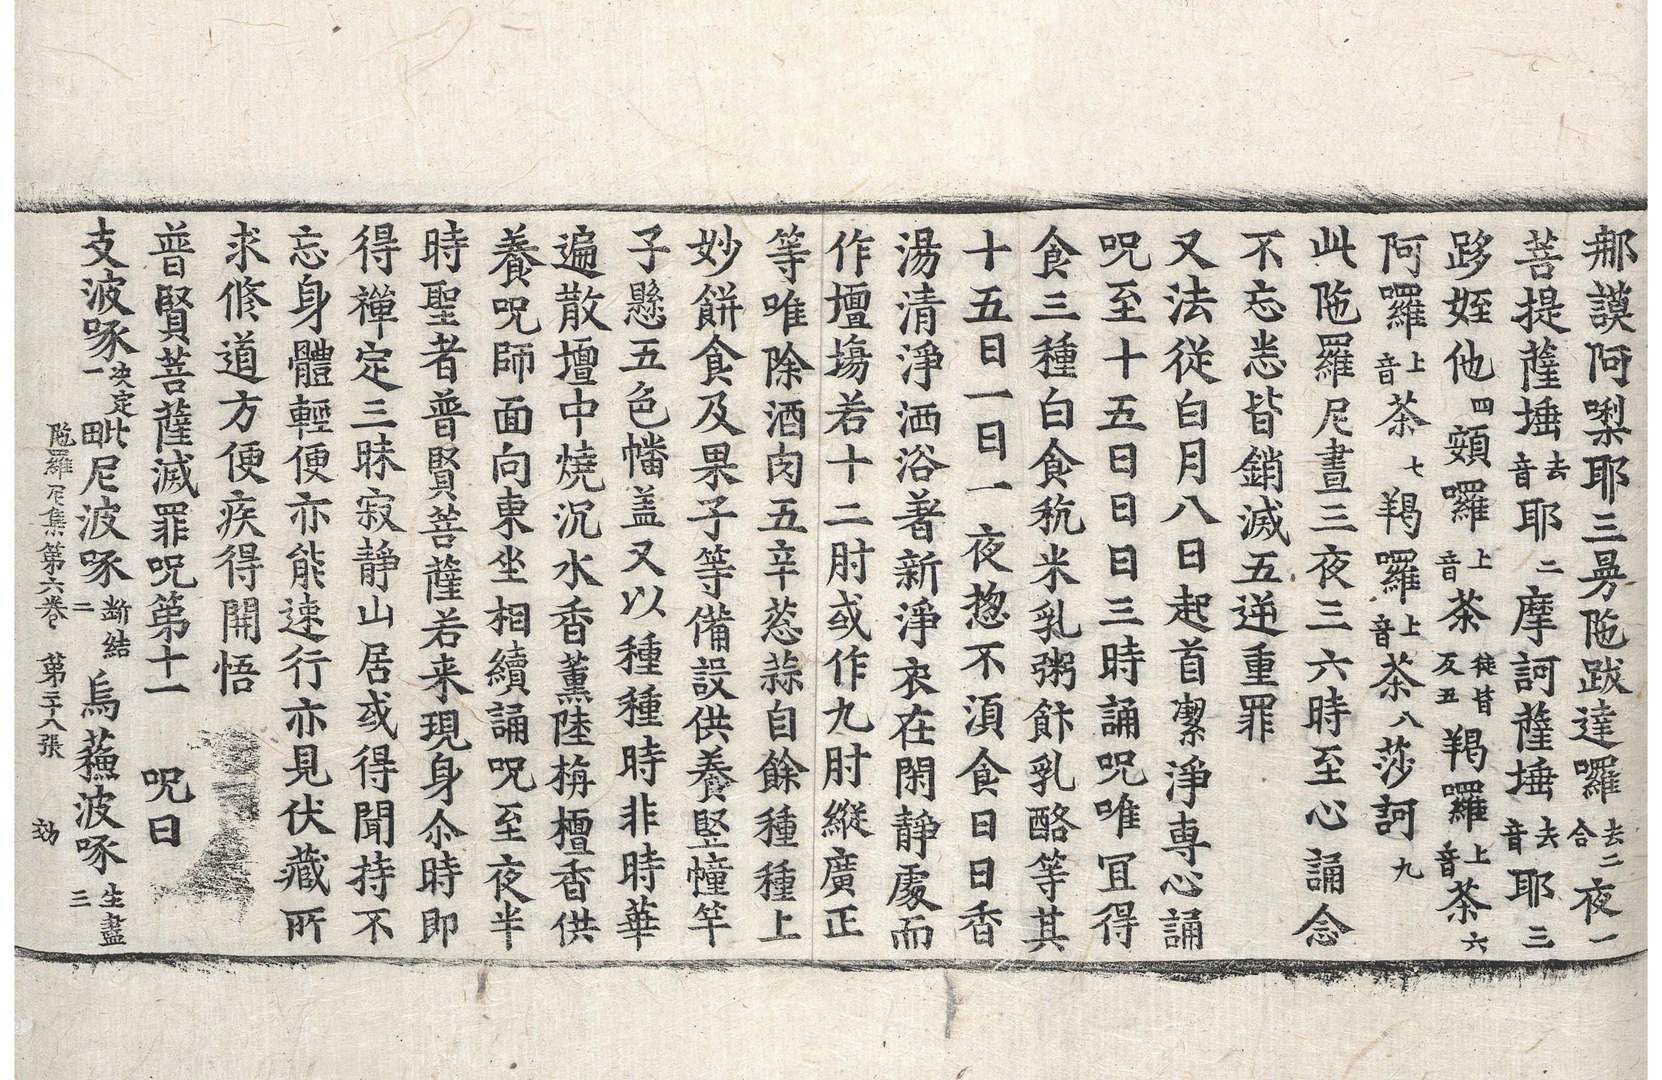 那謨阿唎耶三曼陁跋達囉去二合夜一
菩提薩埵去音耶二摩訶薩埵去音耶三
跢姪他四頞囉上音茶徒皆反五羯囉上音茶六
阿囉上音茶七羯囉上音茶八莎訶九
此陁羅尼晝三夜三六時至心誦念
不忘悉皆銷滅五逆重罪
又法從白月八日起首潔淨專心誦
呪至十五日日日三時誦呪唯冝得
食三種白食秔米乳粥飰乳酪等其
十五日一日一夜惣不湏食日日香
湯清淨洒浴著新淨衣在閑靜處而
作壇塲若十二肘或作九肘縱廣正
等唯除酒肉五辛葱蒜自餘種種上
妙餅食及果子等備設供養竪幢竿
子懸五色幡盖又以種種時非時華
遍散壇中燒沉水香薰陸栴檀香供
養呪師面向東坐相續誦呪至夜半
時聖者普賢菩薩若来現身尒時即
得禪定三昧寂靜山居或得聞持不
忘身體輕便亦能速行亦見伏藏所
求修道方便疾得開悟
普賢菩薩滅罪呪第十一　呪曰
支波啄一决定此田尼波啄二断結烏蘓波啄三生盡
陁羅尼集第六卷　第二十八張　効